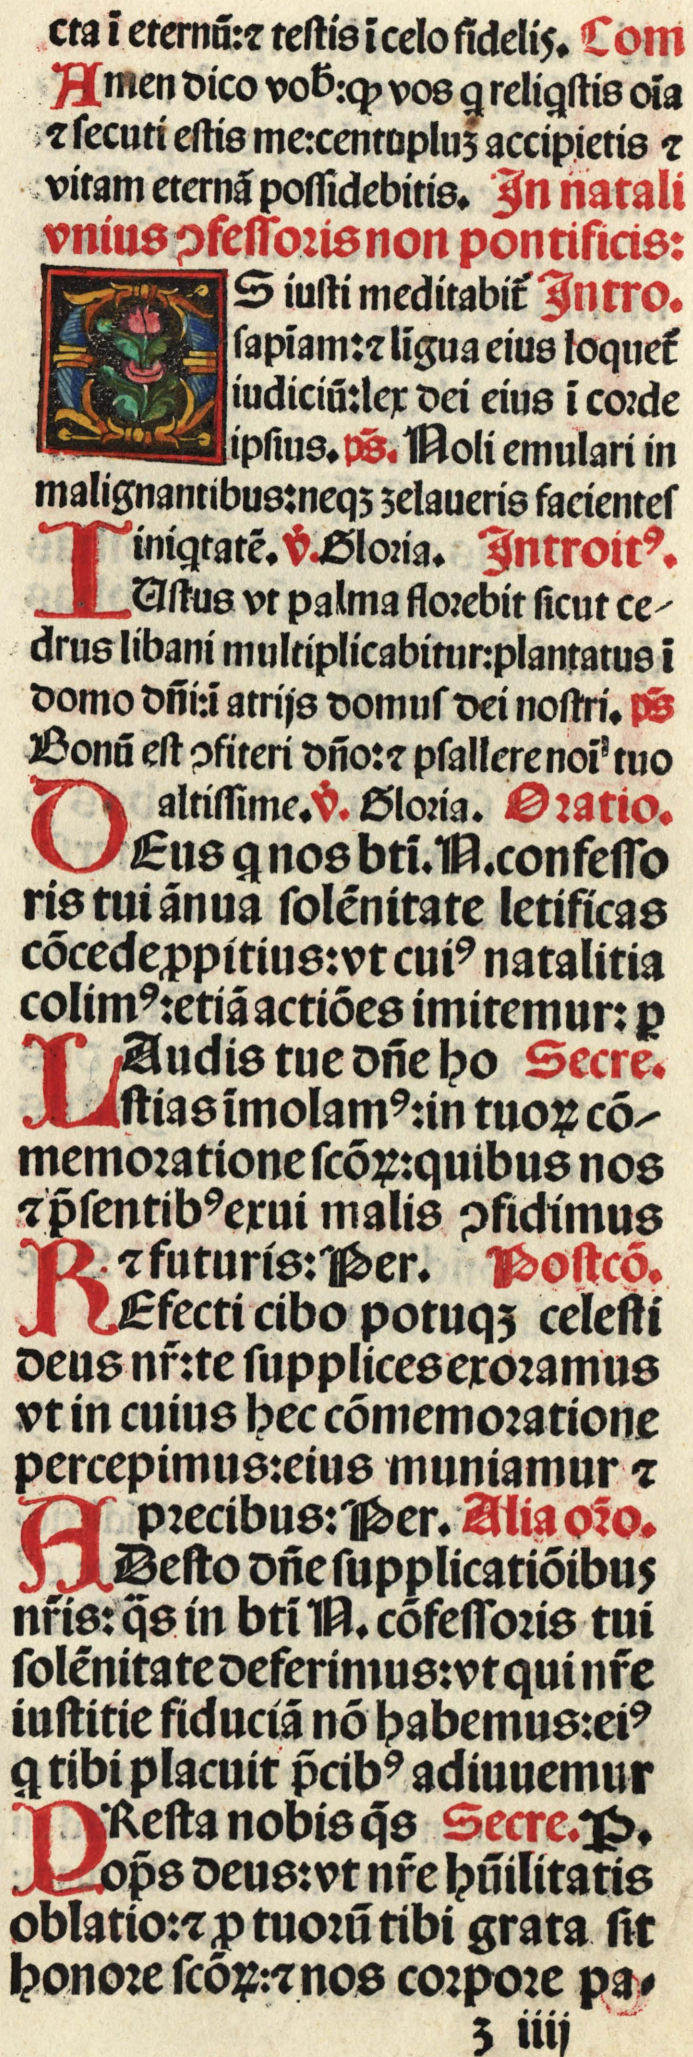 cta ī eternū:⁊ testis ī celo fidelis. Com
Amen dico vob̄:ꝙ vos q̄ reliq̄stis oīa
⁊ secuti estis me:centupluꝫ accipietis ⁊
vitam eternā possidebitis. In natali
vnius ꝯfessoris non pontificis:
OS iusti meditabit̄ Intro.
sapīam:⁊ līgua eius loquet̄
iudiciū:lex dei eius ī corde
ipsius. ps̄. Noli emulari in
malignantibus:neqꝫ zelaueris facientes
iniq̄tatē. v̄. Gloria. Introitꝰ.
IUstus vt palma florebit sicut ce-
drus libani multiplicabitur:plantatus ī
domo dn̄i:ī atrijs domus dei nostri. ps̄
Bonū est ꝯfiteri dn̄o:⁊ psallere noī tuo
altissime. v̄. Gloria. Oratio.
DEus q̄ nos btī. N. confesso
ris tui ānua solēnitate letificas
cōcede ꝓpitius:vt cuiꝰ natalitia
colimꝰ:etiā actiōes imitemur: ꝑ
LAudis tue dn̄e ho Secre.
stias īmolamꝰ:in tuoꝝ cō-
memoratione scōꝝ:quibus nos
⁊ p̄sentibꝰ exui malis ꝯfidimus
⁊ futuris: Per. Postcō.
REfecti cibo potuqꝫ celesti
deus nr̄:te supplices exoramus
vt in cuius hec cōmemoratione
percepimus:eius muniamur ⁊
precibus: Per. Alia or̄o.
ADesto dn̄e supplicatiōibus
nr̄is: q̄s in btī N. cōfessoris tui
solēnitate deferimus:vt qui nr̄e
iustitie fiduciā nō habemus:eiꝰ
q̄ tibi placuit p̄cibꝰ adiuuemur
PResta nobis q̄s Secre. P.
op̄s deus:vt nr̄e hūilitatis
oblatio:⁊ ꝓ tuorū tibi grata sit
honore scōꝝ:⁊ nos corpore pa-
z iiij